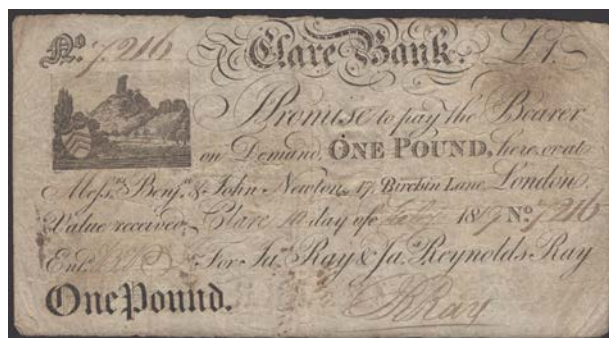 No. 7,216 Clare Bank. £1.
I Promise to pay the Bearer
on Demand, ONE POUND, here, or at
Messrs. Benjn. & John Newton, 17, Birchin Lane, London.
Value received, Clare 10 day of 1819 No. 7216
Entd. For Jas. Ray & Jas. Reynolds Ray
One Pound. JRRay